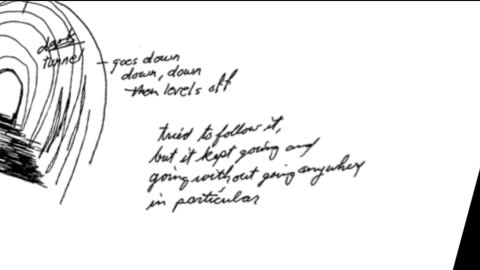 dark
tunnel – goes down
down, down
then levels off
tried to follow it,
but it kept going and
going without going anywhere
in particular